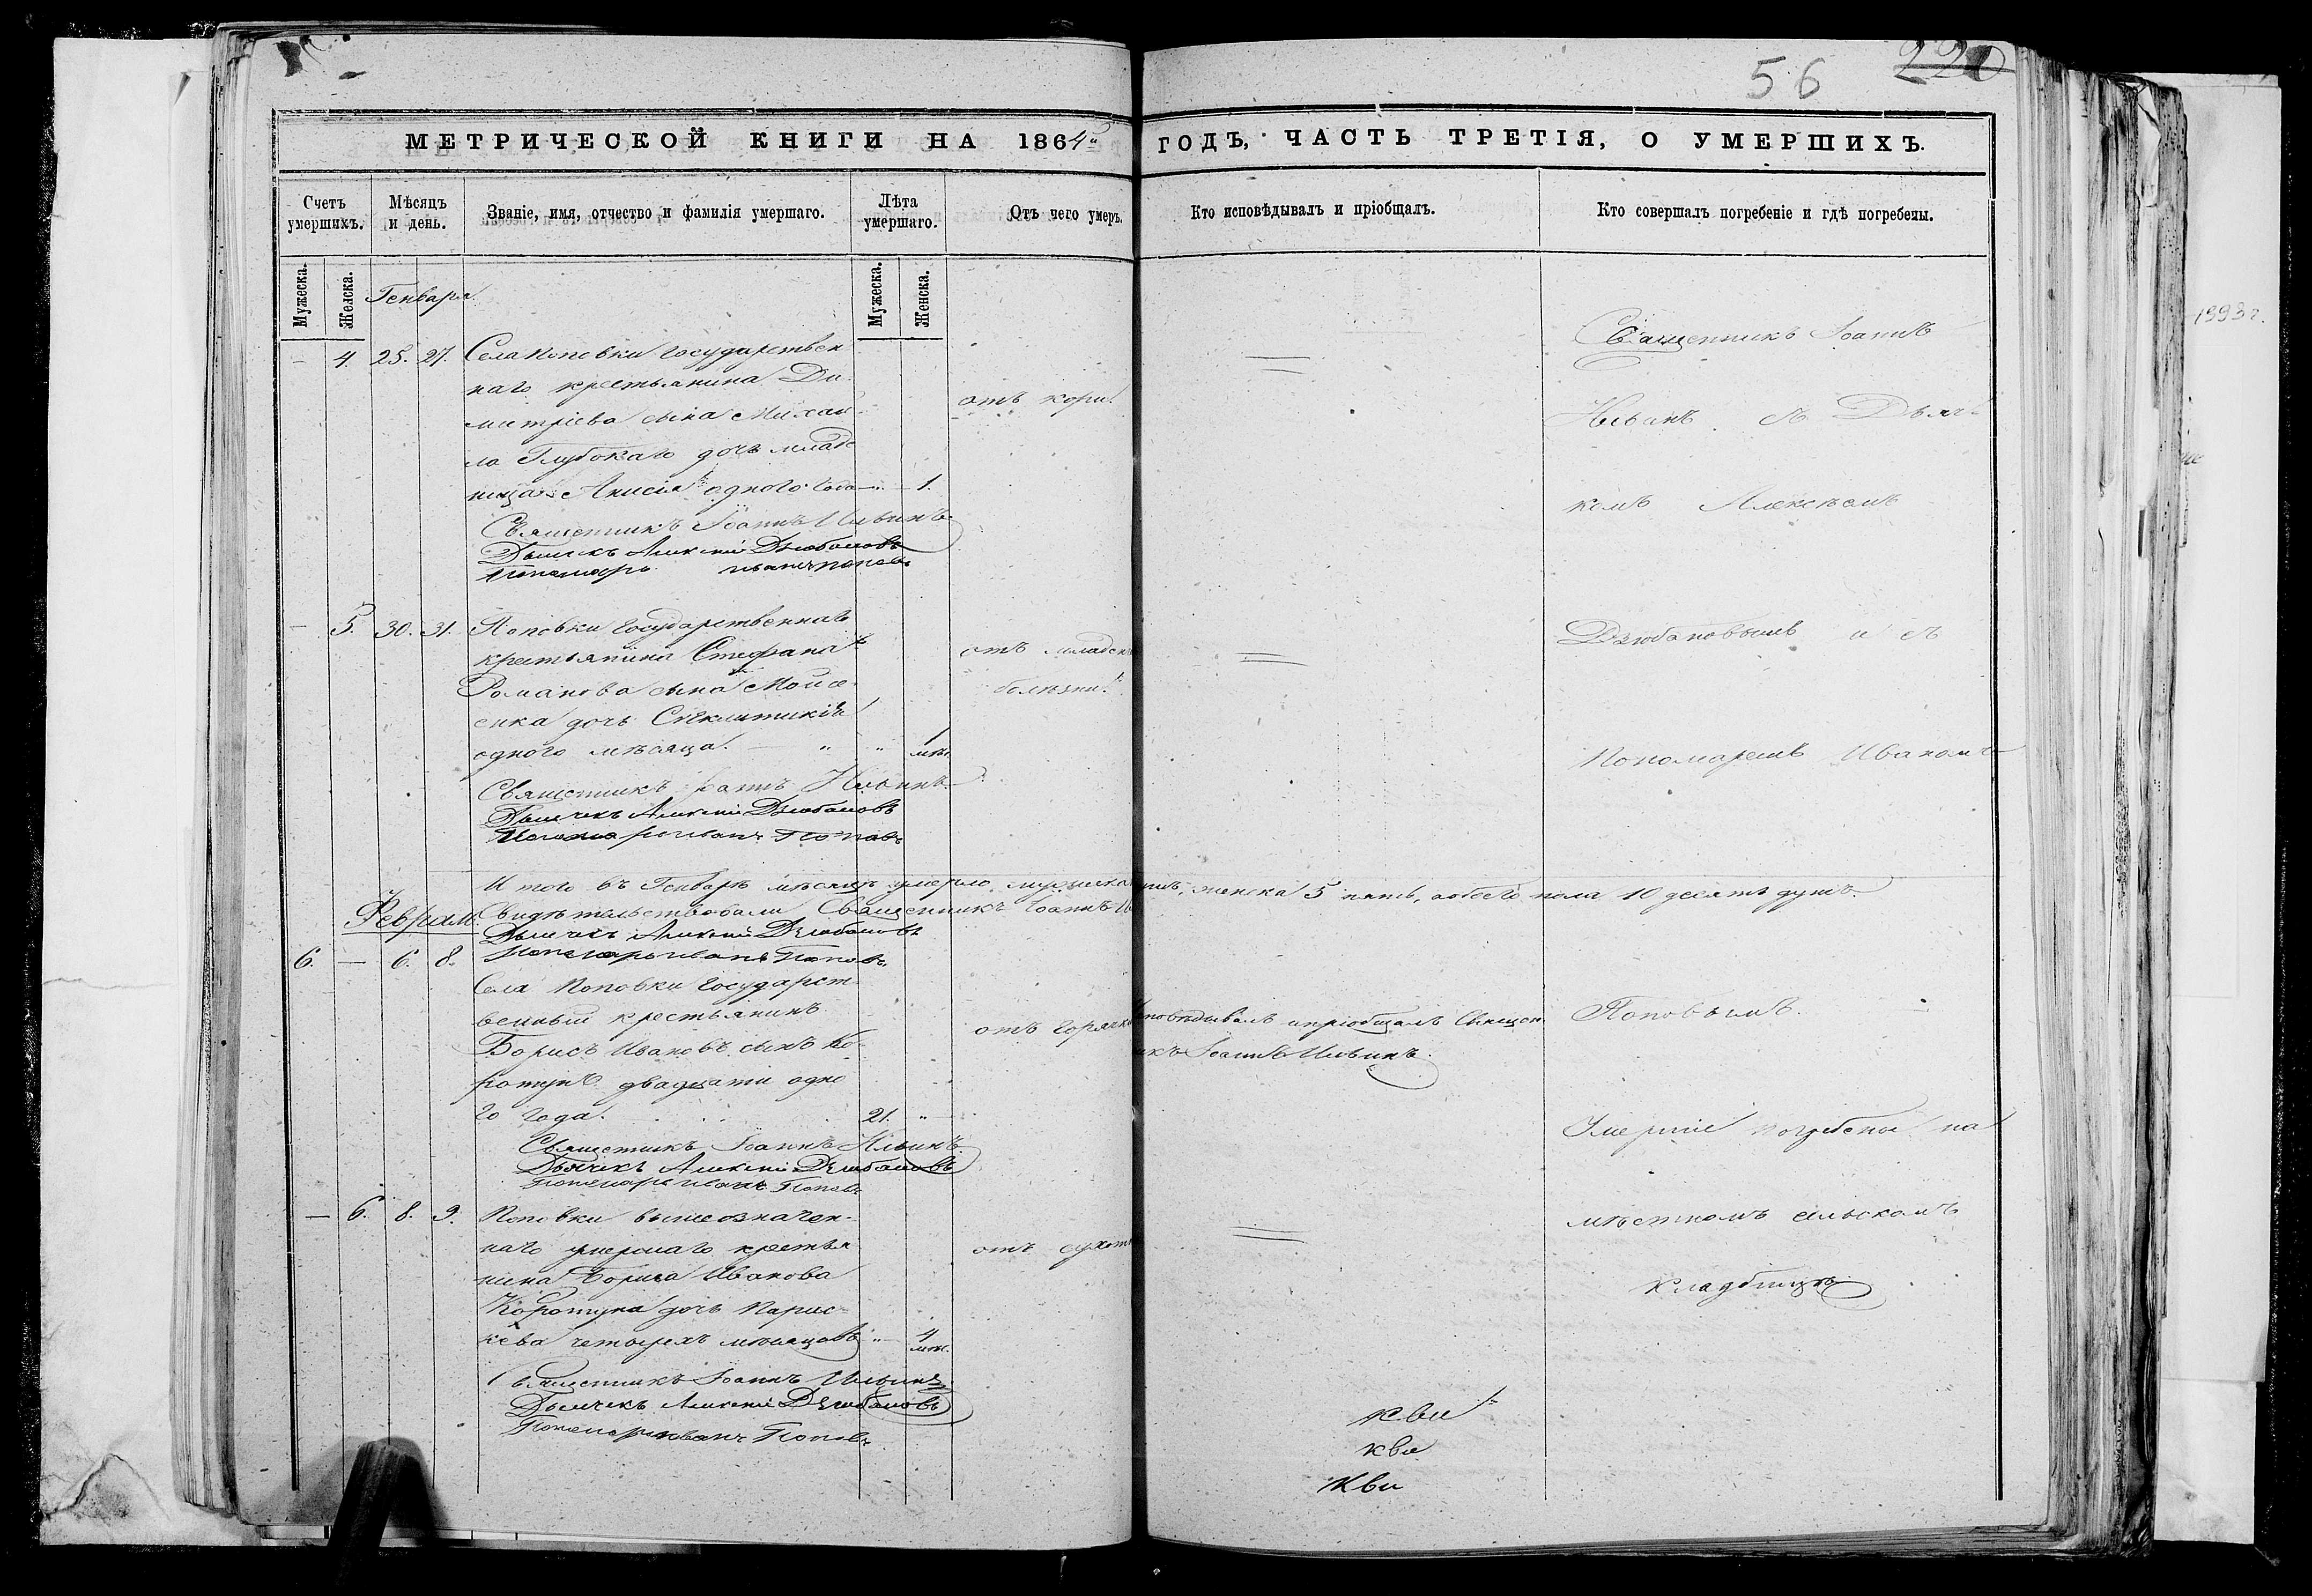 56 220
МЕТРИЧЕСКОЙ КНИГИ НА 1864 ГОДЪ, ЧАСТЬ ТРЕТІЯ, О УМЕРШИХЪ.
Счетъ умершихъ.
Мѣсяцъ и день.
Званіе, имя, отчество и фамилія умершаго.
Лѣта умершаго.
Отъ чего умеръ.
Кто исповѣдывалъ и пріобщалъ.
Кто совершалъ погребеніе и гдѣ погребены.
Мужеска.
Женска.
Генваря
Мужеска.
Женска.
— 4. 25. 27. Села Поповки государствен
наго крестьянина Ди
митріева сына Михаи
ла Глубокаго дочь младе
ница Анисія одного года — 1.
отъ кори
Священникъ Іоаннъ Ильинъ
Дьячекъ Алексій Дзюбановъ
Пономарь Иванъ Поповъ
— 5. 30. 31. Поповки государственнаго
крестьянина Стефана
Романова сына Мойсе
енка дочь Сигклитикія
одного мѣсяца. — " " 1 мѣс.
отъ младен
болѣзни
Священникъ Іоаннъ Ильинъ
Дьячекъ Алексій Дзюбановъ
Пономарь Иванъ Поповъ
Итого въ Генварѣ мѣсяцѣ умерло мужеска женска 5 пять, а обоего пола 10 десять душъ.
Свидѣтельствовали Священникъ Іоаннъ
Февраля
Дьячекъ Алексій Дзюбановъ
Пономарь Иванъ Поповъ
6. — 6. 8.
Села Поповки государст
венный крестьянинъ
Борисъ Ивановъ сынъ Ко
ротунъ двадцати одно
го года. 21. "
отъ горячк
исповѣдывалъ и пріобщалъ Священ
никъ Іоаннъ Ильинъ.
Священникъ Іоаннъ Ильинъ
Дьячекъ Алексій Дзюбановъ
Пономарь Иванъ Поповъ
— 6. 8. 9. Поповки вышеозначен
наго умершаго крестья
нина Бориса Иванова
Коротуна дочь Парас
кева четырехъ мѣсяцовъ " 4 мѣс.
отъ сухот
Священникъ Іоаннъ Ильинъ
Дьячекъ Алексій Дзюбановъ
Пономарь Иванъ Поповъ
Священникъ Іоаннъ
Ильинъ съ Дьяч
комъ Алексѣемъ
Дзюбановымъ и съ
Пономаремъ Иваномъ
Поповымъ.
Умершіе погребены на
мѣстномъ сельскомъ
кладбищѣ
кви
кви
кви
1993 г.